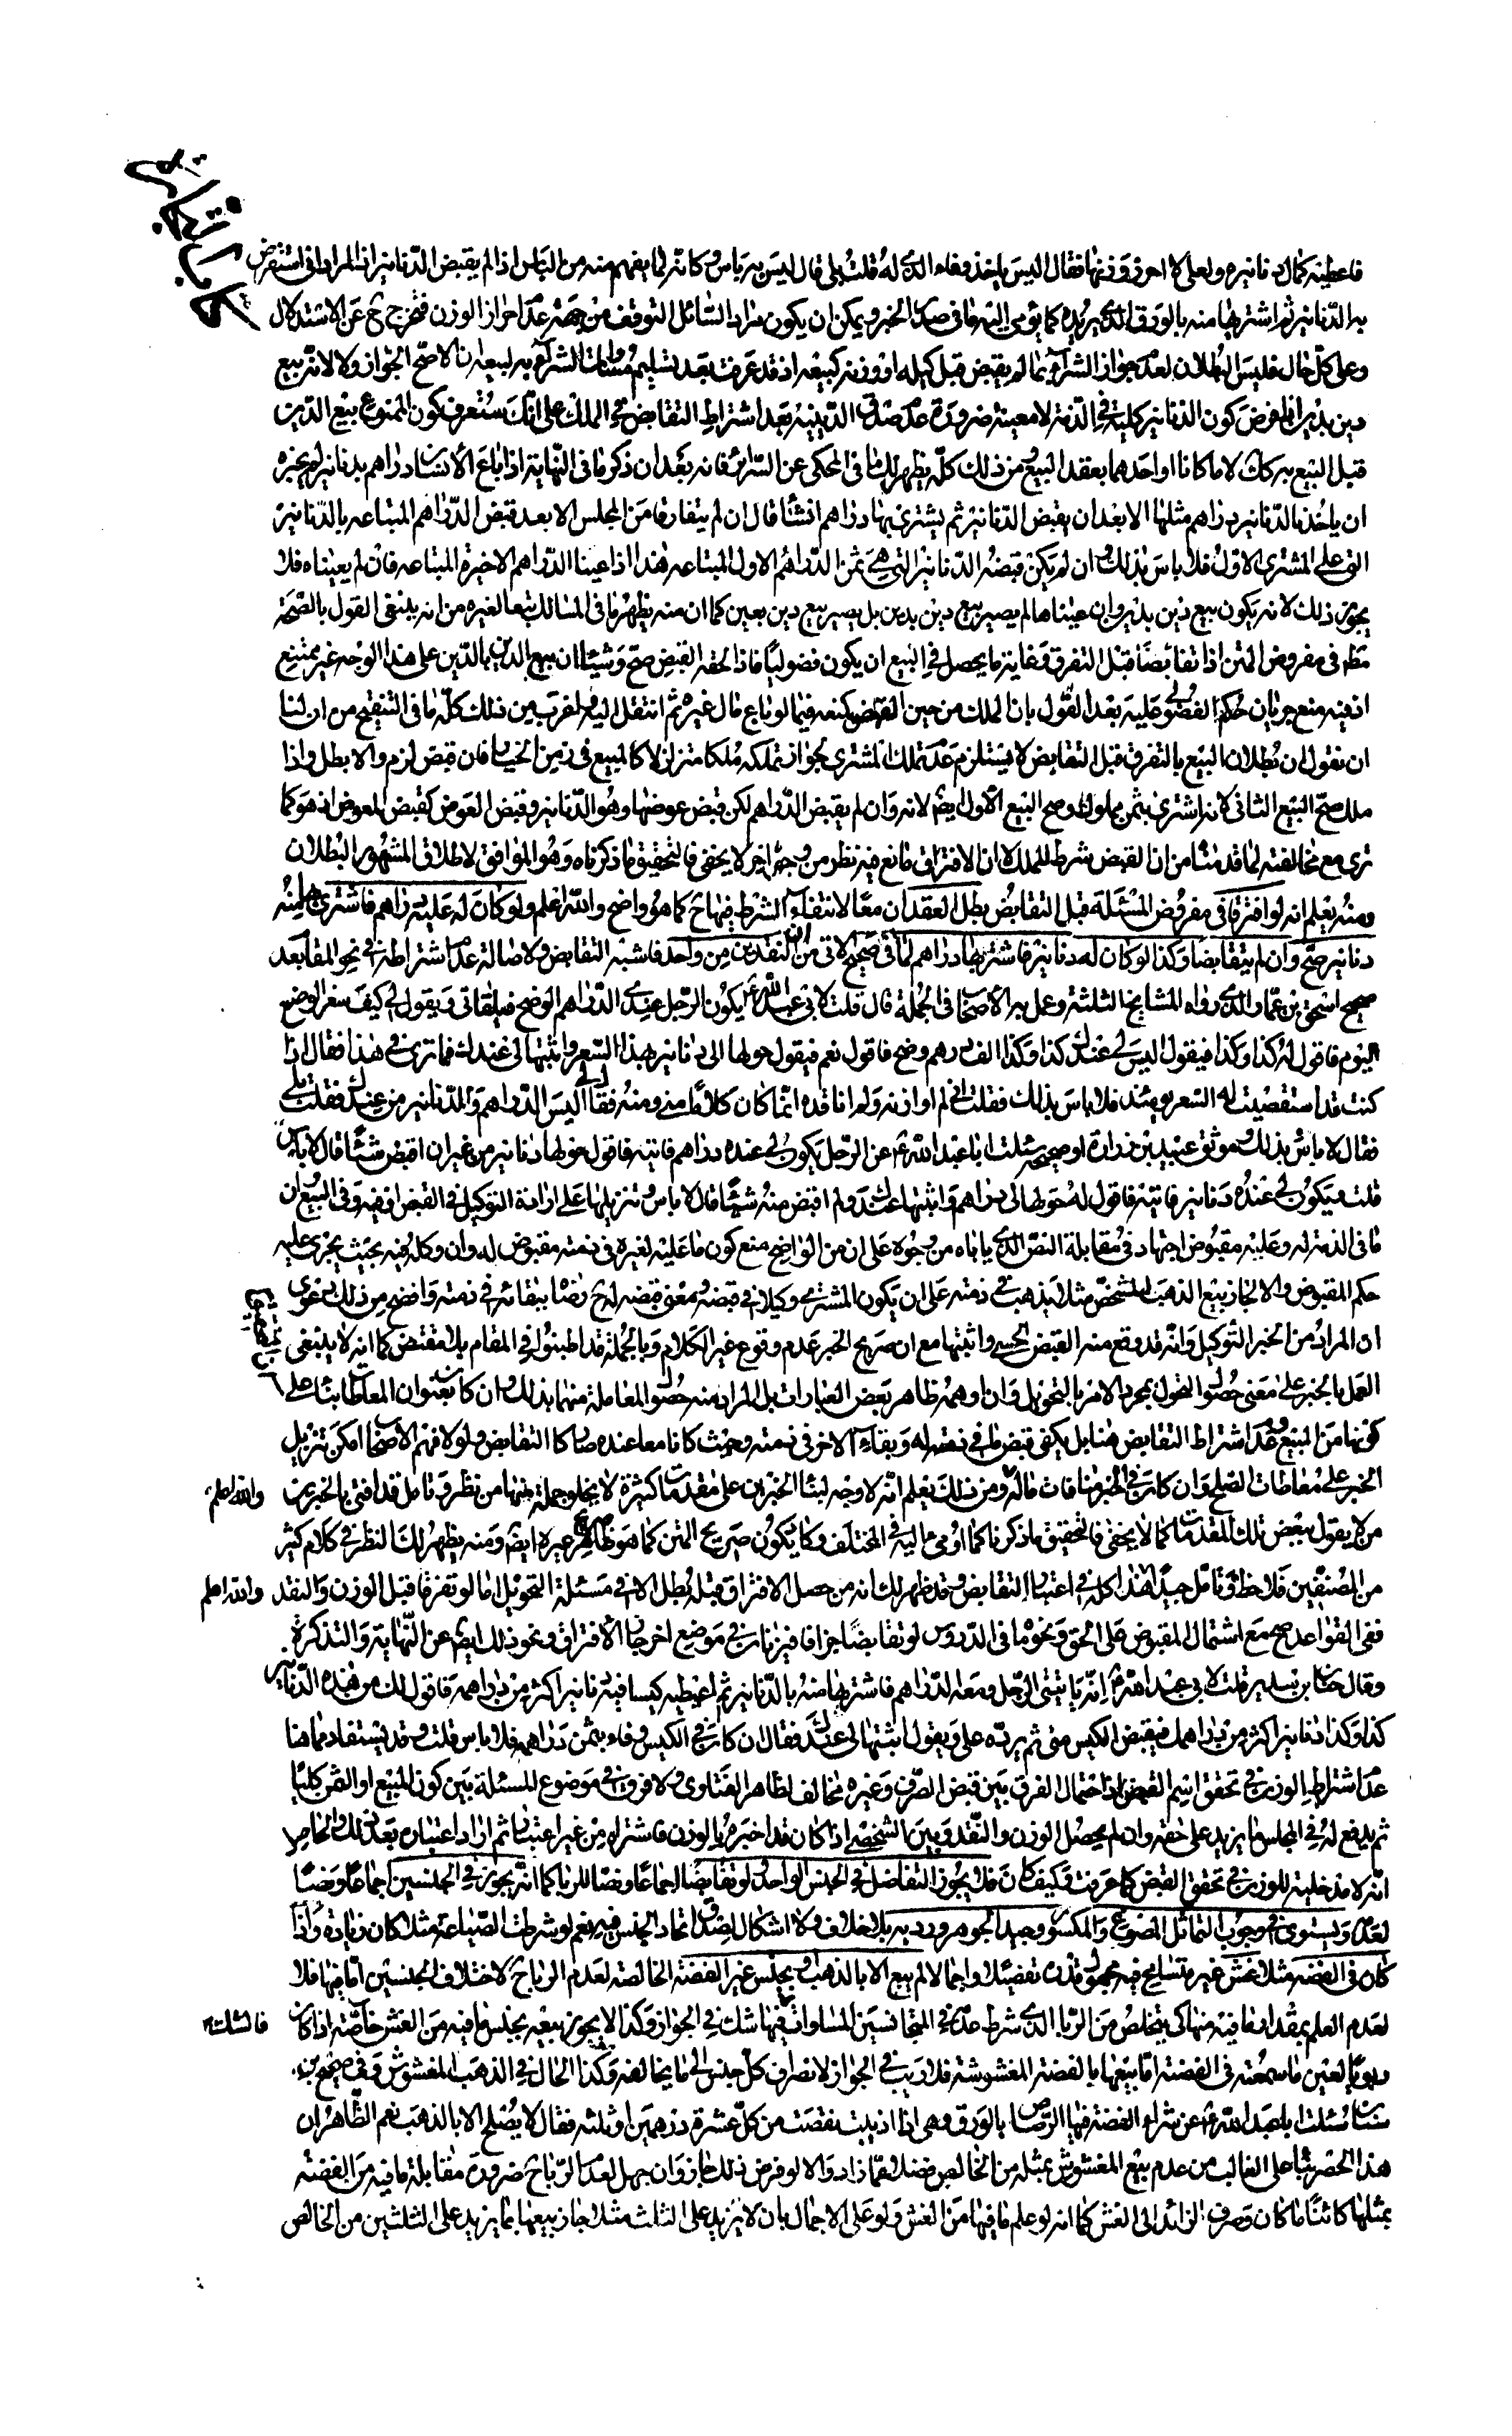 فاعطيته كمال دنانيره ولعلى لا احرز وزنها فقال اليس ياخذ وفاء الذى له قلت بلى قال ليس به باس وكانه لما يفهم منه من الباس اذا لم يقبض الدنانير اذ المراد انى استقرض
به الدنانير ثم اشتريها منه بالورق الذى يريدم كما يؤمى اليه ما فى صدر الخبر ويمكن ان يكون مراد السائل التوقف من جهة عدم احراز الوزن فتخرج ح عن الاستدلال
وعلى كل حال فليس البطلان لعدم جواز الشراء بما لم يقبض قبل كيله او وزنه كبيعه اذ قد عرفت بعد تسليم مساوات الشراء به لبيعه ان الاصح الجواز ولا لانه بيع
دين بدين اذ المفروض كون الدنانير كلية فى الذمة لا معينة ضرورة عدم صدق الدينية بعد اشتراط التقابض فى الملك على انك ستعرف كون الممنوع بيع الدين
قبل البيع به كك لا ما كانا او احدهما بعقد البيع ومن ذلك كله يظهر لك ما فى المحكى عن السرائر فانه بعد ان ذكر ما فى النهاية اذا باع الانسان دراهم بدنانير لم يجز له
ان ياخذ بالدنانير دراهم مثلها الا بعد ان يقبض الدنانير ثم يشترى بها دراهم انشأ قال ان لم يتفارقا من المجلس الا بعد قبض الدراهم المبتاعه بالدنانير
التى على المشترى الاول فلا باس بذلك وان لم يكن قبضه الدنانير التى هى ثمن الدراهم الاول المبتاعه هذا اذا عينا الدراهم الاخيرة المبتاعه فان لم يعيناه فلا
يجوز ذلك لانه يكون بيع دين بدين وان عيناها لم يصير بيع دين بدين بل يصير بيع دين بعين كما ان منه يظهر ما فى المسالك تبعا لغيره من انه ينبغى القول بالصحة
مطم فى مفروض المتن اذا تقابضا قبل التفرق وغاية ما يحصل فى البيع ان يكون فضوليا فاذا لحقه القبض صح وشيئا ان بيع الدين بالدين على هذا الوجه غير ممتنع
اذ فيه منع جريان حكم الفضولى عليه بعد القول بان الملك من حين القبض كمنعه فيما لو باع مال غيره ثم انتقل اليه واغرب من ذلك كله ما فى التنقيح من ان لنا
ان نقول ان بطلان البيع بالتفرق قبل التقابض لا يستلزم عدم تملك المشترى لجواز تملكه ملكا متزلزلا كالمبيع فى زمن الخيار فان قبض لزم والا بطل واذا
ملك صح البيع الثانى لانه اشترى بثمن مملوك وصح البيع الاول ايضم لانه وان لم يقبض الدراهم لكن قبض عوضها وهو الدنانير وقبض العوض كقبض المعوض اذ هو كما
ترى مع مخالفته لما قدمنا من ان القبض شرط للملك لا ان الافتراق مانع فيه نظر من وجه اخر لا يخفى فالتحقيق ما ذكرناه وهو الموافق لاطلاق المشهور البطلان
ومنه يعلم انه لو افترقا فى مفروض المسئلة قبل التقابض بطل العقدان معا لانتفاء الشرط فيهما ح كما هو واضح والله اعلم ولو كان له عليه دراهم فاشترى بها منه
دنانير صح وان لم يتقابضا وكذا لو كان له دنانير فاشترى بها دراهم لما فى صحيح الاتى من ان النقدين من واحد فاشبه التقابض ولاصالة عدم اشتراطه فى نحو المقام بعد
صحيح اسحق بن عمار الذى رواه المشايخ الثلثة وعمل به الاصحاب فى الجملة قال قلت لابى عبد الله ع يكون للرجل عندى الدراهم الوضح فيلقانى ويقول لى كيف سعر الوضح
اليوم فاقول له كذا وكذا فيقول اليس لى عندك كذا وكذا الف درهم وضح فاقول نعم فيقول حولها الى دنانير بهذا السعر واثبتها لى عندك فما ترى فى هذا فقال اذا
كنت قد استقصيت له السعر يومئذ فلا باس بذلك فقلت انى لم اوازنه ولم اناقده انما كان كلاما منى ومنه فقال اليس الدراهم والدنانير من عندك فقلت بلى
فقال لا باس بذلك وموثق عبيد بن زرارة او صحيحه سئلت ابا عبد الله ع عن الرجل يكون لى عنده دراهم فاتيه فاقول حولها دنانير من غير ان اقبض شيئا قال لا باس
قلت ويكون لى عنده دنانير فاتيه فاقول له حولها لى دراهم واثبتها عندك ولم اقبض منه شيئا قال لا باس وتنزيلها على ارادة التوكيل فى القبض او فيه وفى البيع وان
ما فى الذمة له وعليه مقبوض اجتهاد فى مقابلة النص الذى ياباه من وجوه على ان من الواضح منع كون ما عليه لغيره فى ذمته مقبوض له وان وكله فيه بحيث يجرى عليه
حكم المقبوض والا لجاز بيع الذهب المشخص مثلا بذهب فى ذمته على ان يكون المشترى وكيلا فى قبضه ومعنى قبضه له ح رضاه ببقائه فى ذمته واوضح من ذلك دعوى
ان المراد من الخبر التوكيل وانه قد وقع منه القبض الحسى واثبتها مع ان صريح الخبر عدم وقوع غير الكلام وبالجملة قد اطنبوا فى المقام بلا مقتض كما انه لا ينبغى
العمل بالخبر على معنى حصول التحول بمجرد الامر بالتحويل وان اوهمه ظاهر بعض العبارات بل المراد منه حصول المعاملة منهما بذلك وان كان بعنوان المعاطاة بناء على
كونها من البيع وعدم اشتراط التقابض هنا بل يكفى قبض ما فى ذمته له وبقاء الاخر فى ذمته وحيث كانا معا عنده صار كالتقابض ولولا فهم الاصحاب امكن تنزيل
الخبر على معاطات الصلح وان كان فى الخبر منافات ما له ومن ذلك يعلم انه لا وجه لبناء الخبرين على مقدمات كثيرة لا يخلو جملة منها من نظر وتامل قد افتى بالخبرين
من لا يقول ببعض تلك المقدمات كما لا يخفى فالتحقيق ما ذكرنا كما اومى اليه فى المختلف وكاد يكون صريح المتن كما هو ظاهر غيره ايضم ومنه يظهر لك النظر فى كلام كثير
من المصنفين فلاحظ وتامل جيدا هذا كله فى اعتبار التقابض وقد ظهر لك انه من حصل الافتراق قبله بطل الا فى مسئلة التحويل اما لو تفرقا قبل الوزن والنقد والله اعلم
ففى القواعد صح مع اشتمال المقبوض على الحق ونحوه ما فى الدروس لو تقابضا جزافا فيزنان فى موضع اخر جاز الافتراق ونحو ذلك ايضم عن النهاية والتذكرة
وقال حنان بن سدير قلت لابى عبد الله ع انه ياتينى الرجل ومعه الدراهم فاشتريها منه بالدنانير ثم اعطيه كيسا فيه دنانير اكثر من دراهمه فاقول لك من هذه الدنانير
كذا وكذا دنانير اكثر من دراهمك فيقبض الكيس منى ثم يرده على ويقول اثبتها لى عندك فقال ان كان فى الكيس وفاء بثمن دراهمه فلا باس قلت وقد يستفاد مما هنا
عدم اشتراط الوزن فى تحقق اسم القبض اذ احتمال الفرق بين قبض الصرف وغيره مخالف لظاهر الفتاوى ولا فرق فى موضوع المسئلة بين كون المبيع او الثمن كليا
ثم يدفع له فى المجلس ما يزيد على حقه وان لم يحصل الوزن والنقد وبين الشخصى اذا كان قد اخبره بالوزن فاشتراه من غير اعتبار ثم اراد اعتباره بعد ذلك والحاصل
انه لا مدخلية للوزن فى تحقق القبض كما عرفت وكيف كان فلا يجوز التفاضل فى الجنس الواحد ولو تقابضا اجماعا ونصا للربا كما انه يجوز فى الجنسين اجماعا ونصا
لعدمه ويستوى فى وجوب التماثل المصوغ والمكسور وجيد الجوهر ورديه بلا خلاف ولا اشكال لصدق اتحاد الجنس فيه نعم لو شرطت الصياغة مثلا كان زيادة واذا
كان فى الفضة مثلا غش غير متسامح فيه مجهول قدره تفصيلا واجمالا لم يبع الا بالذهب او بجنس غير الفضة الخالصة لعدم الربا ح لاختلاف الجنسين اما فيها فلا
لعدم العلم بمقدار ما فيه منها كى يتخلص من الربا الذى شرط عدمه فى المتجانسين المساوات فيها شك فى الجواز وكذا لا يجوز بيعه بجنس ما فيه من الغش خاصة اذا كان
ربويا لعين ما سمعته فى الفضة اما بيعها بالفضة المغشوشة فلا ريب فى الجواز لانصراف كل جنس الى ما يخالفه وكذا الحال فى الذهب المغشوش وفى صحيح بن
سنان سئلت ابا عبد الله ع عن شراء الفضة فيها الرصاص بالورق وهى اذا اذيبت نقصت من كل عشرة درهمين او ثلثه فقال لا يصلح الا بالذهب نعم الظاهر ان
هذا الحصر بناء على الغالب من عدم بيع المغشوش بمثله من الخالص فضلا عما زاد والا لو فرض ذلك جاز وان جهل لعدم الربا ح ضرورة مقابلة ما فيه من الفضة
بمثلها كائنا ما كان وصرف الزائد الى الغش كما انه لو علم ما فيها من الغش ولو على الاجمال بان لا يزيد على الثلث مثلا جاز بيعها بما يزيد على الثلثين من الخالص